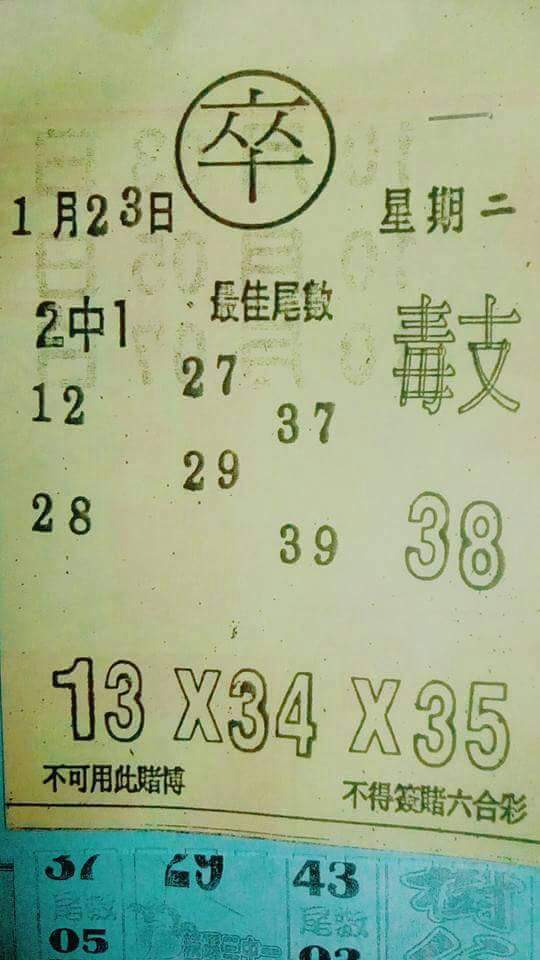 卒
1月23日
星期二
2中1
最佳尾數
毒支
12
27
37
28
29
39
38
13 X 34 X 35
不可用此賭博
不得簽賭六合彩
37 29 43
尾數
尾數
05